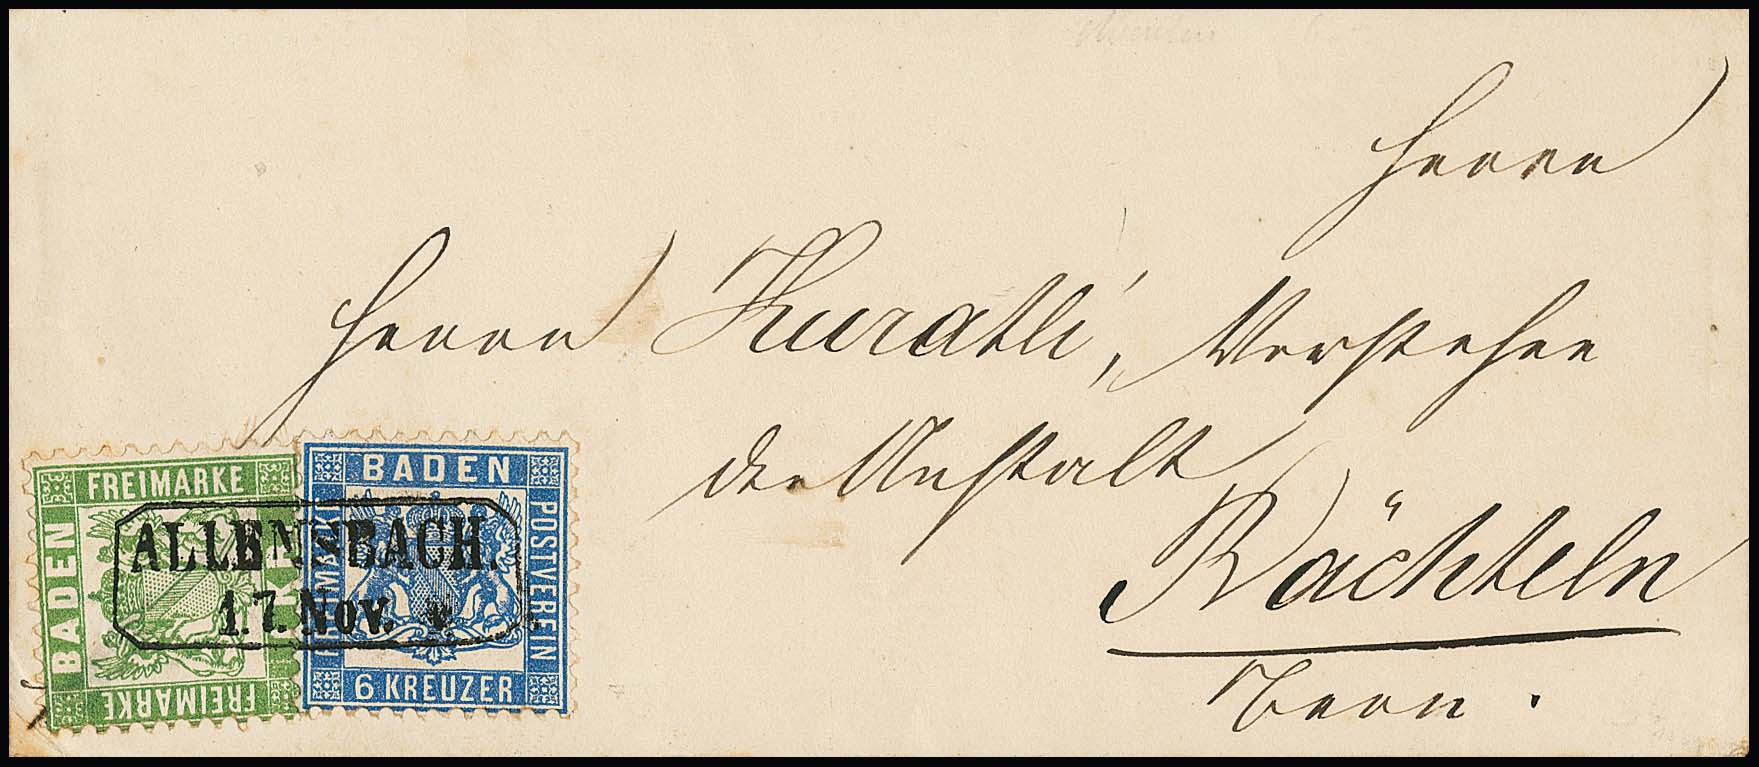 Herrn
Herrn Kuratli, Vorsteher
der Anstalt
Bächteln
Bern.
FREIMARKE
BADEN
FREIMARKE
BADEN
POSTVEREIN
6 KREUZER
FREIMARKE
ALLENSBACH.
17. Nov. *